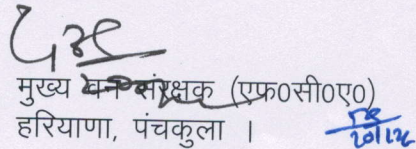 मुख्य वन संरक्षक (एफ०सी०ए०)
हरियाणा, पंचकुला ।